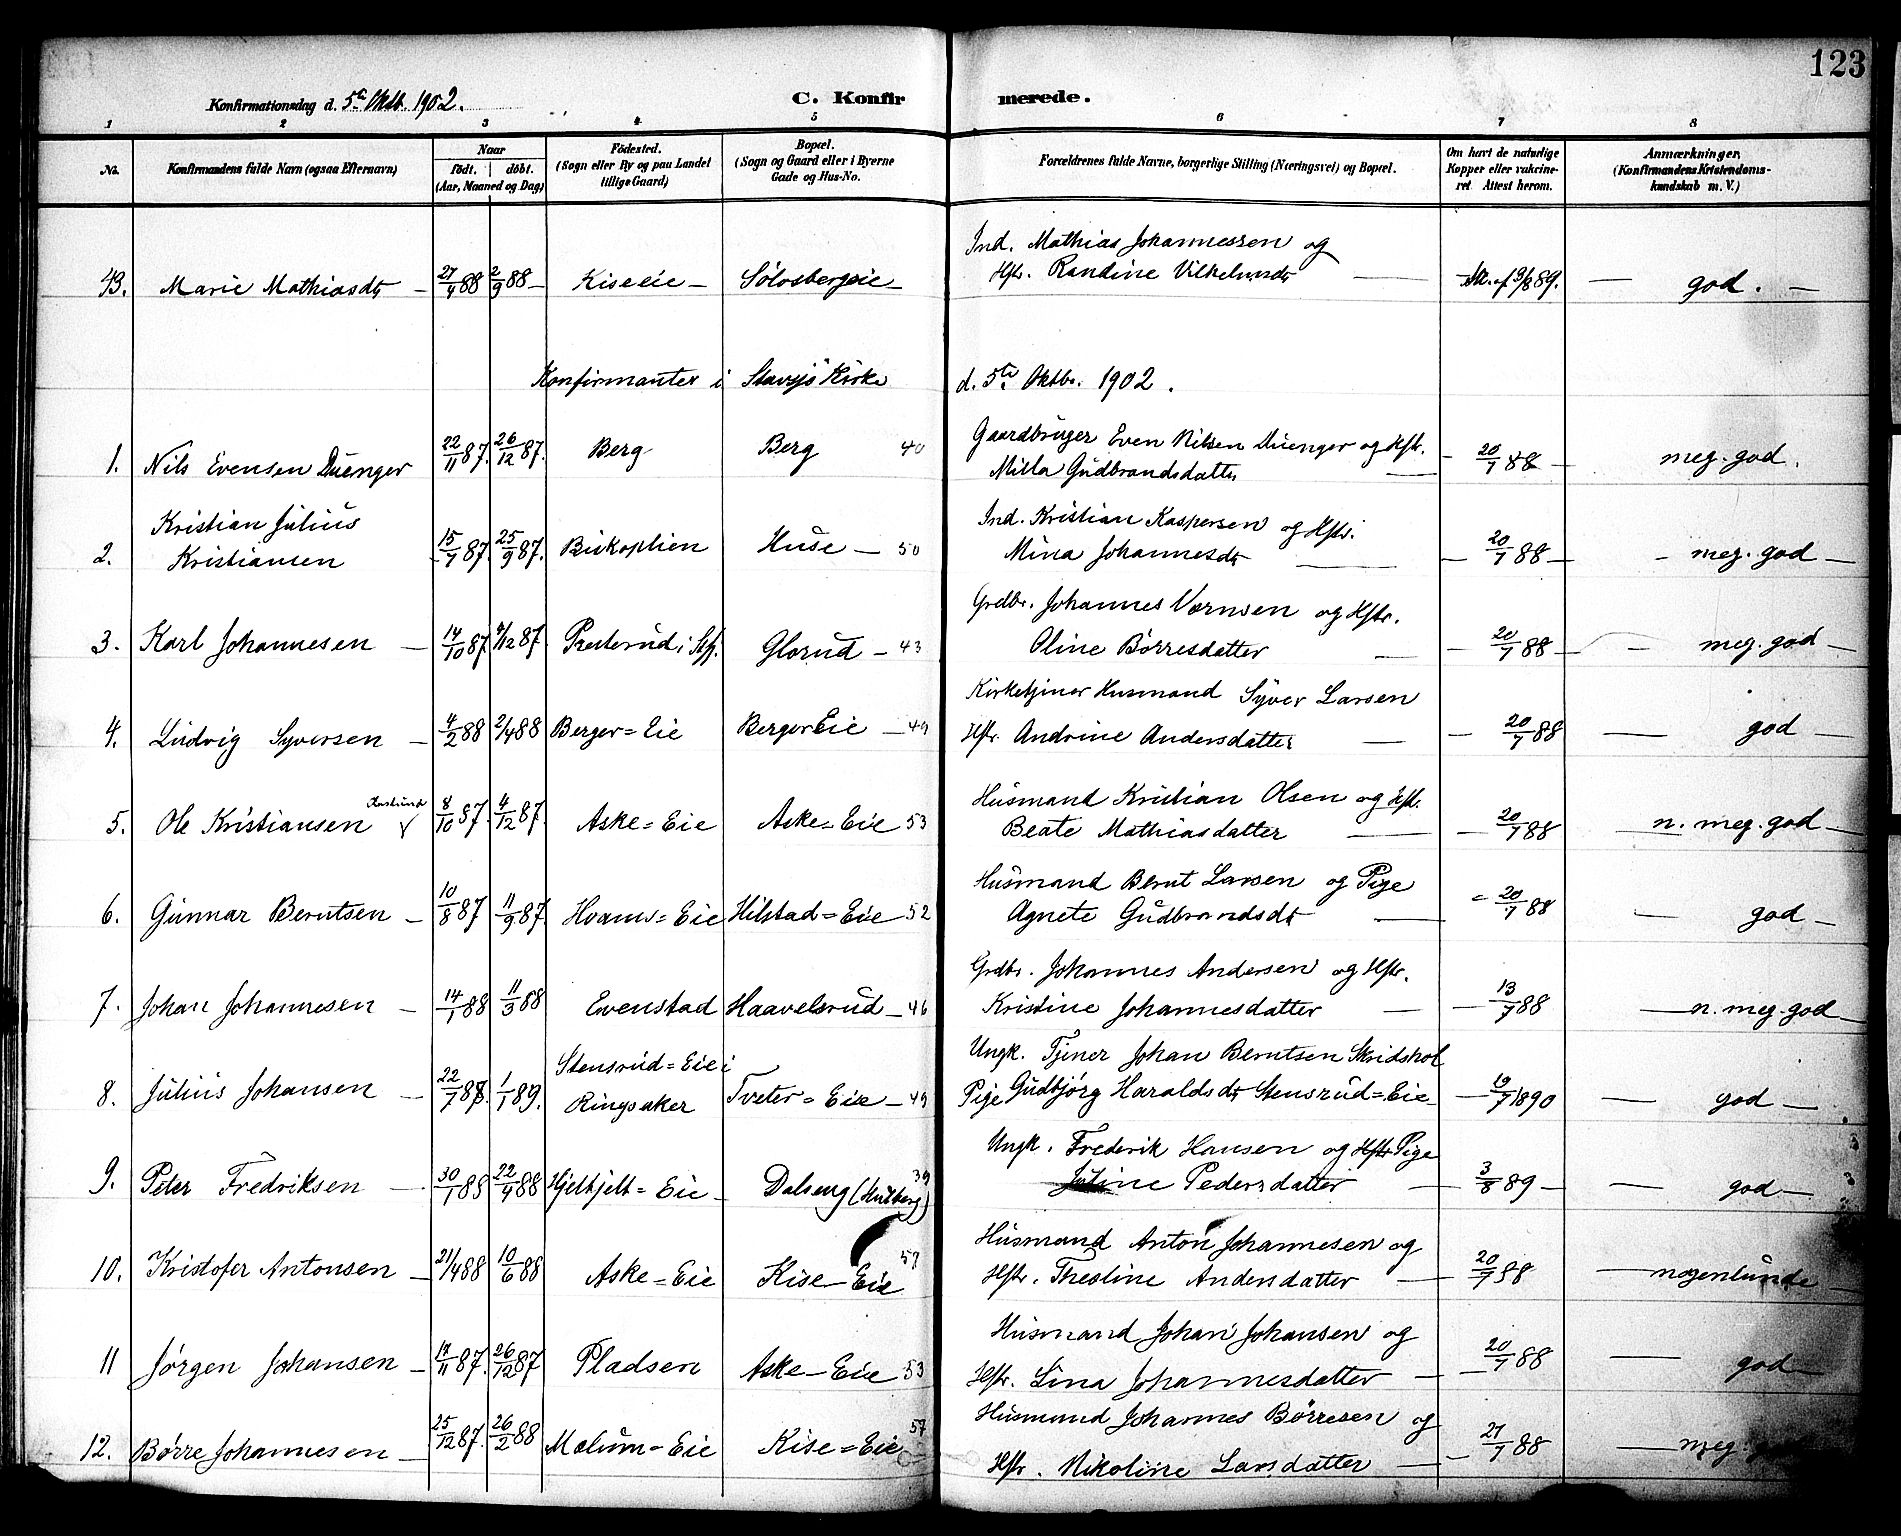 123
Konfirmationsdag d. 5te Oktb. 1902. C. Konfirmerede.
1 2 3 4 5 6 7 8
No. Konfirmandens fulde Navn (ogsaa Efternavn) Naar født. døbt. (Aar, Maaned og Dag) Fødested. (Sogn eller By og paa Landet tillige Gaard) Bopæl. (Sogn og Gaard eller i Byerne Gade og Hus-No. Forældrenes fulde Navne, borgerlige Stilling (Næringsvei) og Bopæl. Om havt de naturlige Kopper eller vakcineret. Attest herom. Anmærkninger, (Konfirmandens Kristendomskundskab m. V.)
Ind. Mathias Johannessen og
43. Marie Mathiasdt 27/4 88 2/9 88 Kiseeie Sølvsbergeie Hstr. Randine Vilhelmsdt At. af 9/8 89. god.
Konfirmanter i Stavsjø Kirke d. 5te Oktbr. 1902.
Gaardbruger Even Nilsen Duenger og Hstr.
1. Nils Evensen Duenger 22/11 87. 26/12 87. Berg Berg 40 Milla Gudbrandsdatter 20/7 88 meg. god.
Kristian Julius Ind. Kristian Kaspersen og Hstr.
2. Kristiansen 15/7 87. 25/9 87. Huse 50 Mina Johannesdt 20/7 88 meg. god
Grdbr. Johannes Vernsen og Hstr.
3. Karl Johannesen 14/10 87 /12 87 Presterud i Glorud 43 Oline Børresdatter 20/7 88 meg. god
Kirketjener Husmand Syver Larsen
4. Ludvig Syversen 4/2 88 2/4 88 Berger=Eie Berger Eie 49 Hstr. Andrine Andersdatter 20/7 88 god
Husmand Kristian Olsen og Hstr.
5. Ole Kristiansen 8/10 87. 4/12 87. Aske=Eie Aske=Eie 53 Beate Mathiasdatter 20/7 88 n. meg. god
Husmand Bernt Larsen og Pige
6. Gunnar Berntsen 10/8 87 11/9 87. Hvams=Eie Hilstad=Eie 52 Agnete Gudbrandsdt 20/7 88 god
Grdbr. Johannes Andersen og Hstr.
7. Johan Johannesen 14/1 88 11/3 88 Evenstad Haavelsrud 46 Kristine Johannesdatter 13/7 88 n. meg. god
Stensrud=Eie i Ungk. Tjener Johan Berntsen Skridshol
8. Julius Johansen 22/7 87. 1/1 89. Ringsaker Tveter=Eie 49 Pige Gudbjørg Haraldsdt Stensrud=Eie 19/7 1890 god
Ungk. Frederik Hansen og Hstr Pige
9. Peter Fredriksen 30/1 88 22/4 88 Hjelkjelt=Eie Dalseng (Hulberg) 39 Pedersdatter 3/8 89 god
Husmand Anton Johannesen og
10. Kristofer Antonsen 21/4 88 10/6 88 Aske=Eie Kise=Eie 57 Hstr. Theoline Andersdatter 20/7 88 nogenlunde
Husmand Johan Johansen og
11 Jørgen Johansen /11 87. 26/12 87 Pladsen Aske=Eie 53 Hstr. Lina Johannesdatter 20/7 88 god
Husmand Johannes Børresen og
12. Børre Johannesen 25/12 87. 26/2 88 Mælum=Eie Kise=Eie 57 Hstr. Nikoline Larsdatter 27/7 88 meg. god